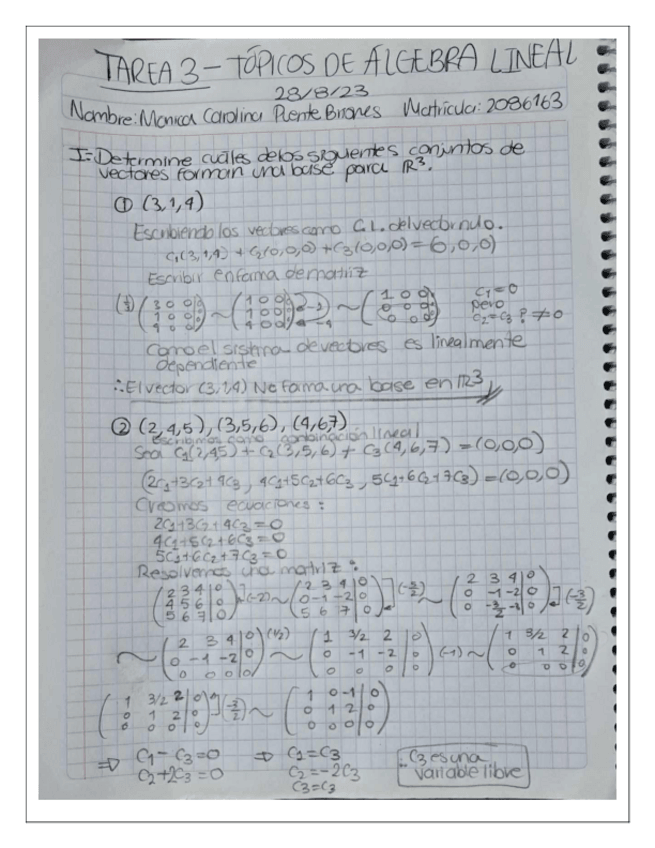 TAREA 3 – TÓPICOS DE ÁLGEBRA LINEAL
28/8/23
Nombre: Monica Carolina Puente Briones Matrícula: 2086163
I- Determine cuáles de los siguientes conjuntos de
vectores forman una base para ℝ³.
① (3,1,4)
Escribiendo los vectores como C.L. del vector nulo.
C₁(3,1,4) + C₂(0,0,0) + C₃(0,0,0) = (0,0,0)
Escribir en forma de matriz
(1/3) (3 0 0|0; 1 0 0|0; 4 0 0|0) ~ (1 0 0|0; 1 0 0|0; 4 0 0|0) -1 -4 ~ (1 0 0|0; 0 0 0|0; 0 0 0|0) C₁=0 pero C₂=C₃ ? ≠0
Como el sistema de vectores es linealmente
dependiente
∴ El vector (3,1,4) No forma una base en ℝ³
② (2,4,5), (3,5,6), (4,6,7)
Escribimos como combinación lineal
Sea C₁(2,4,5) + C₂(3,5,6) + C₃(4,6,7) = (0,0,0)
(2C₁+3C₂+4C₃, 4C₁+5C₂+6C₃, 5C₁+6C₂+7C₃) = (0,0,0)
Creamos ecuaciones:
2C₁+3C₂+4C₃=0
4C₁+5C₂+6C₃=0
5C₁+6C₂+7C₃=0
Resolvemos una matriz:
(2 3 4|0; 4 5 6|0; 5 6 7|0) (-2) ~ (2 3 4|0; 0 -1 -2|0; 5 6 7|0) (-5/2) ~ (2 3 4|0; 0 -1 -2|0; 0 -3/2 -3|0) (-3/2)
~ (2 3 4|0; 0 -1 -2|0; 0 0 0|0) (1/2) ~ (1 3/2 2|0; 0 -1 -2|0; 0 0 0|0) (-1) ~ (1 3/2 2|0; 0 1 2|0; 0 0 0|0)
(1 3/2 2|0; 0 1 2|0; 0 0 0|0) (-3/2) ~ (1 0 -1|0; 0 1 2|0; 0 0 0|0)
⇒ C₁ - C₃ = 0 ⇒ C₁ = C₃ ∴ C₃ es una
C₂ + 2C₃ = 0 C₂ = -2C₃ variable libre
C₃ = C₃